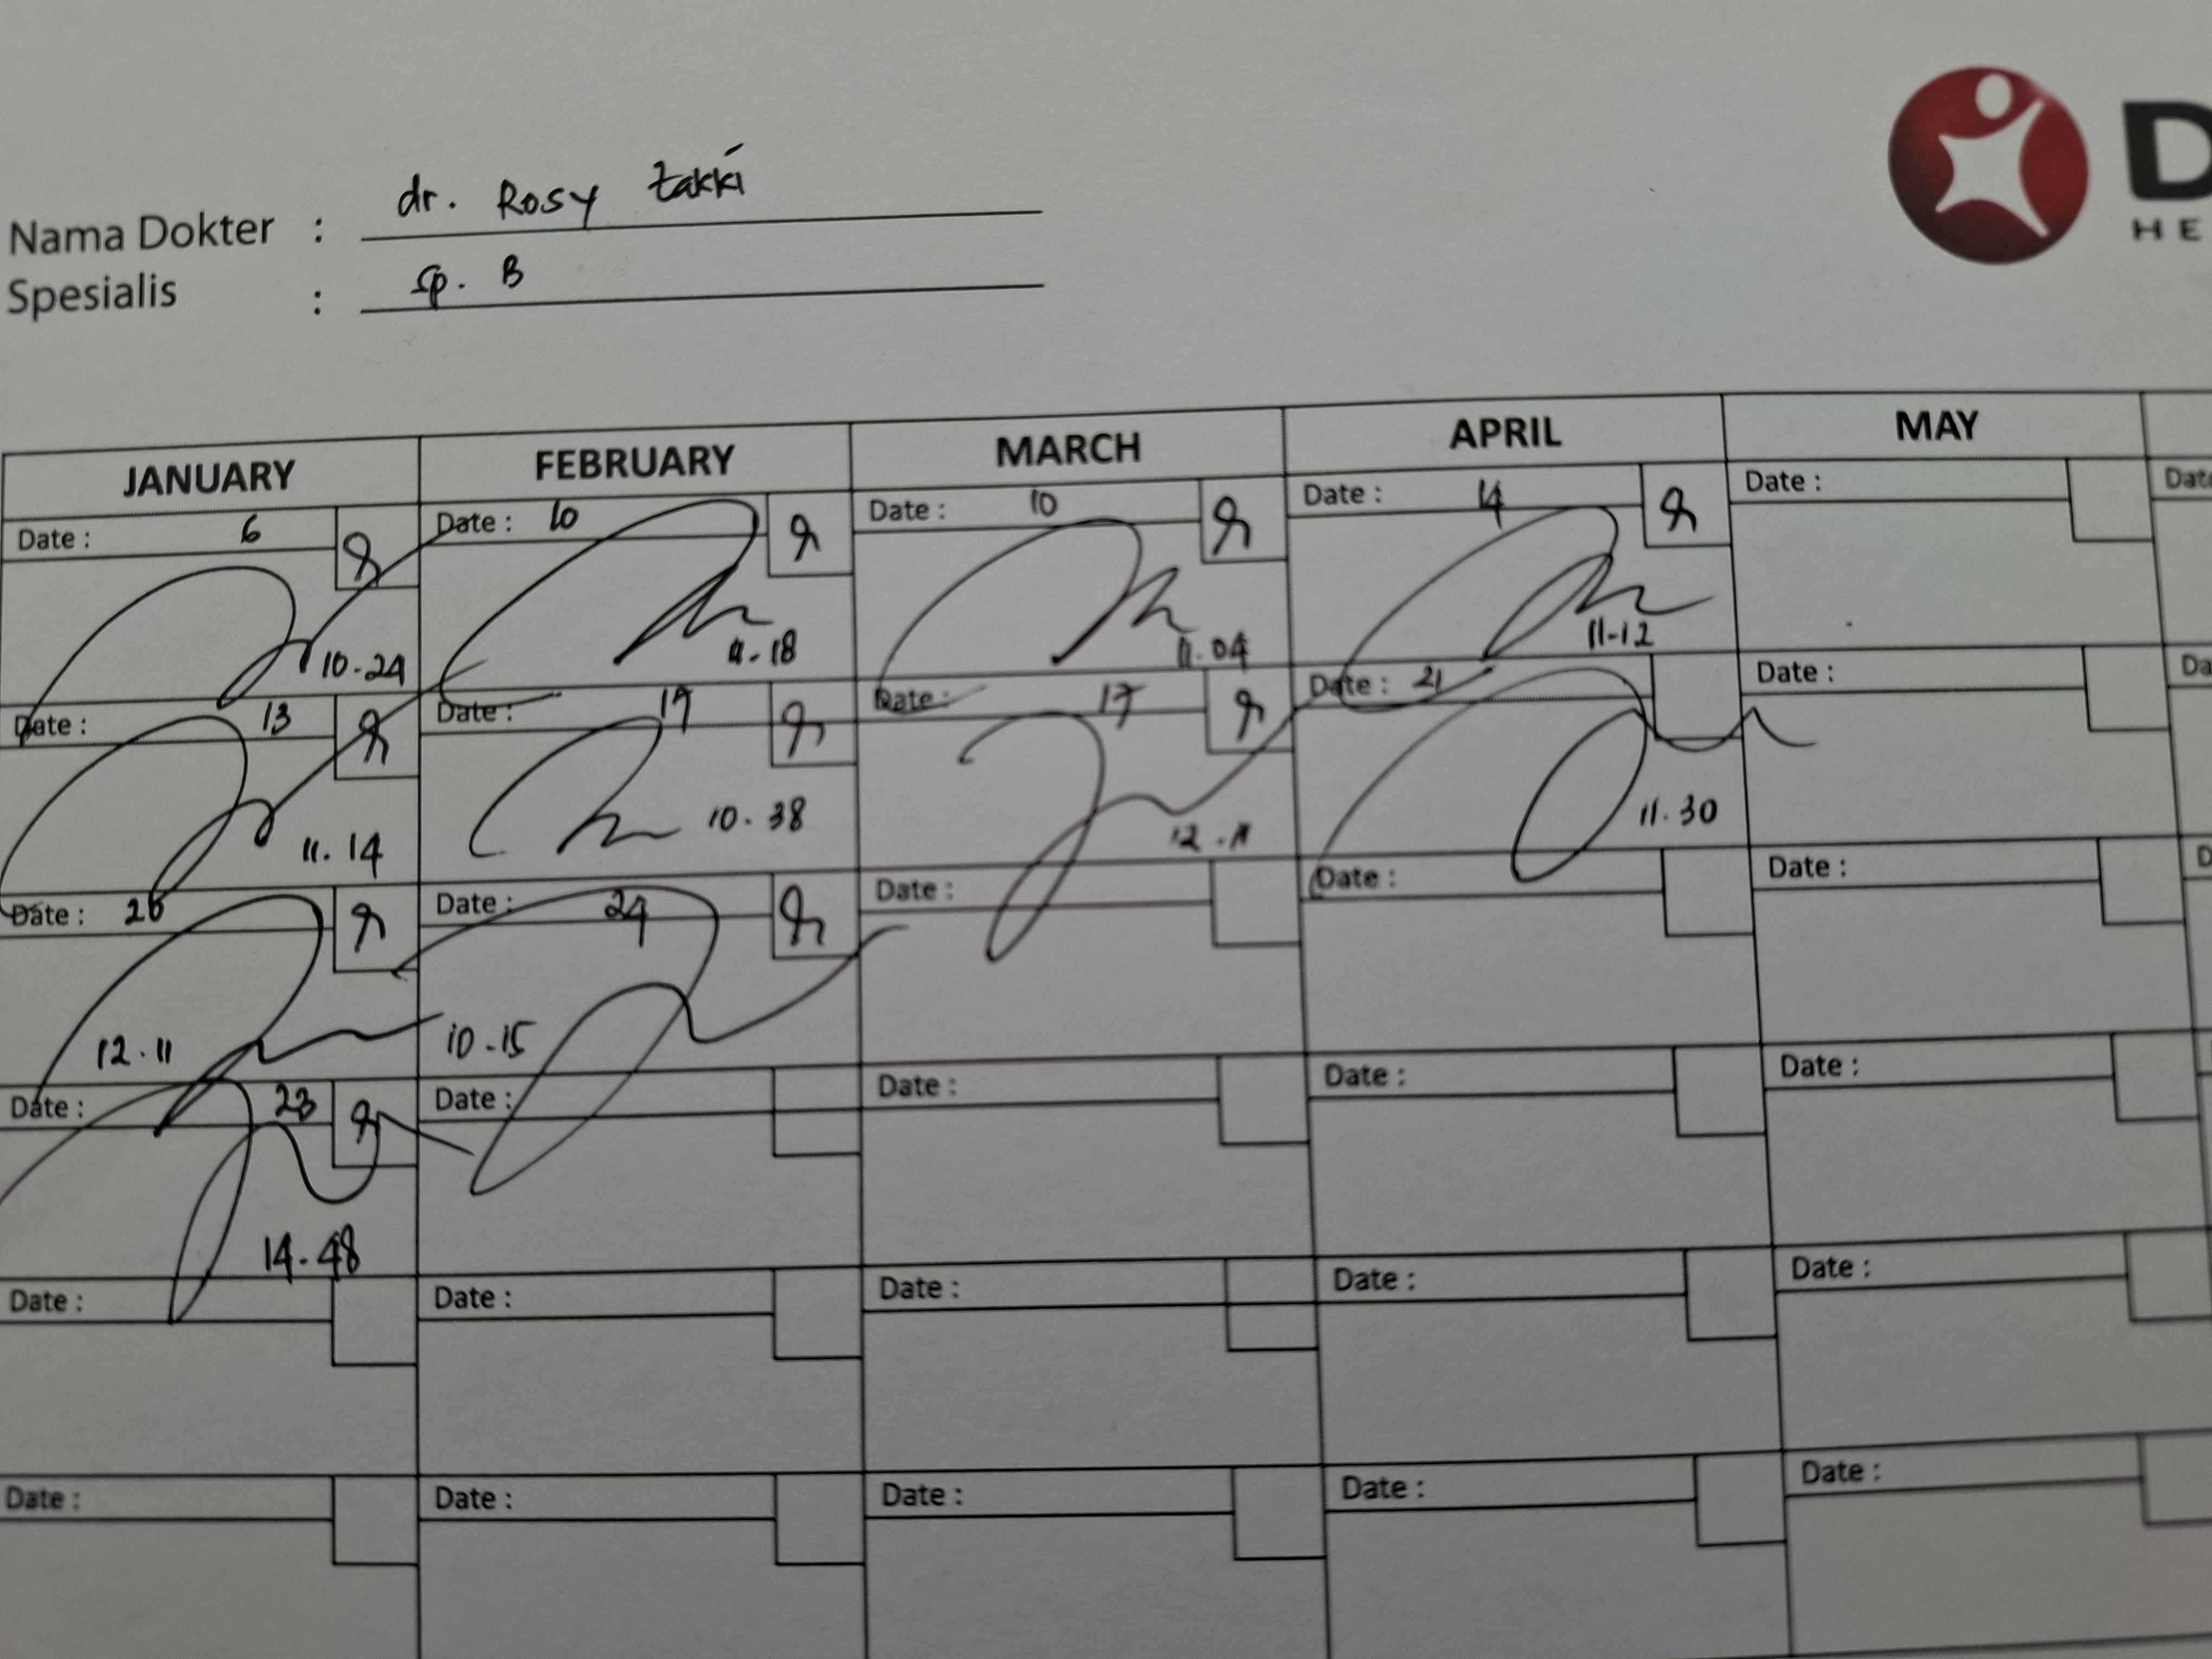 dr. Rosy Zakki
Nama Dokter :
sp. B
Spesialis :
D
HE
JANUARY FEBRUARY MARCH APRIL MAY
Date : 6 Date : 10 Date : 10 Date : 14 Date : Date
10-24 11-18 11.04 11-12
Date : 13 Date : 17 Date : 17 Date : 21 Date : Da
11.14 10.38 12.11 11.30
Date : 20 Date : 24 Date : Date : Date : D
12.11 10-15
Date : 23 Date : Date : Date : Date :
14-48
Date : Date : Date : Date : Date :
Date : Date : Date : Date : Date :